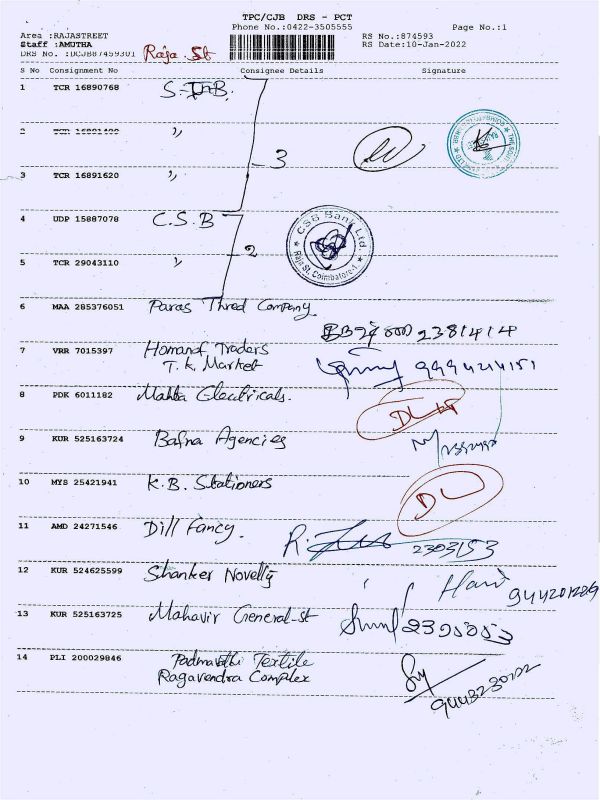 TPC/CJB DRS - PCT
Phone No.:0422-3505555 Page No.:1
Area :RAJASTREET RS No.:874593
Staff :AMUTHA RS Date:10-Jan-2022
DRS No. :DCJB87459301 Raja St
S No Consignment No Consignee Details Signature
1 TCR 16890768 S.I.B.
2 TCR 16891400 "
3 TCR 16891620 " 3
4 UDP 15887078 C.S.B
CSB Bank Ltd
Raja St, Coimbatore-1
5 TCR 29043110 " 2
6 MAA 285376051 Paras Thred Company.
2381414
7 VRR 7015397 Homanof Traders
T.K. Market 9994214151
8 PDK 6011182 Mahta Electricals. DL
9 KUR 525163724 Bafna Agencies
10 MYS 25421941 K.B. Stationers DL
11 AMD 24271546 Dill Fancy. 2303153
12 KUR 524625599 Shanker Novelty Hari
13 KUR 525163725 Mahavir General-st
14 PLI 200029846 Padmavathi Textile
Ragavendra Complex 9443230202